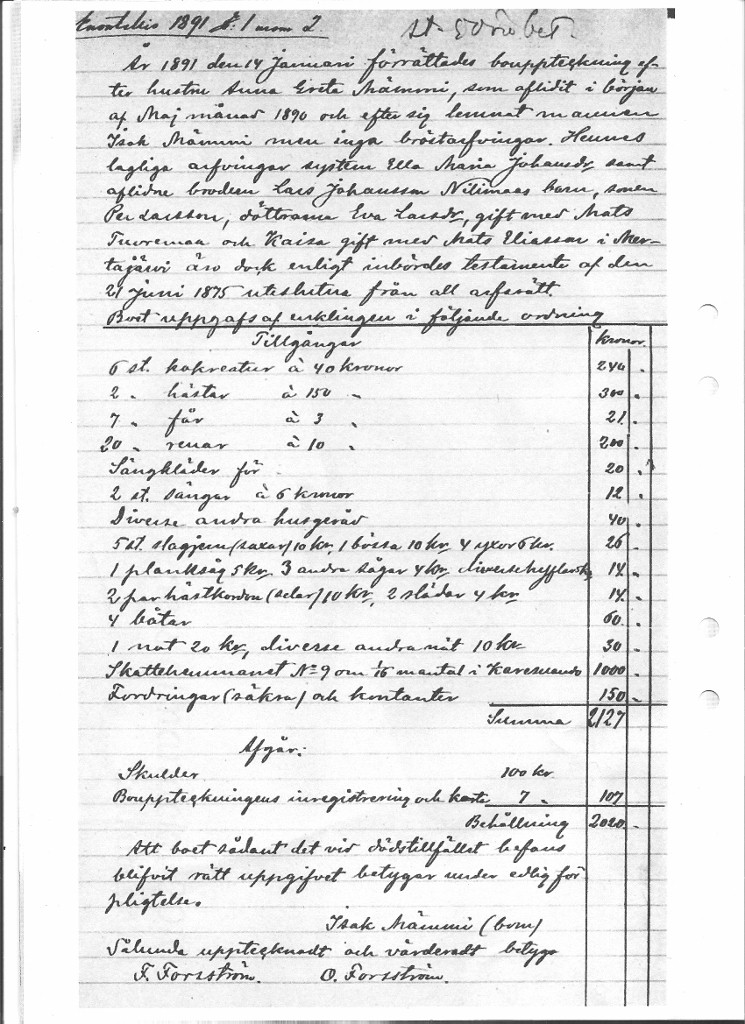 1891 № 1 mom 2.
År 1891 den 14 Januari förrättades bouppteckning ef-
ter hustru Anna Greta Mämmi, som aflidit i början
af Maj månad 1890 och efter sig lemnat mannen
Isak Mämmi men inga bröstarfvingar. Hennes
lagliga arfvingar systern Ella Maria Johansdr samt
aflidne brodren Lars Johansson Nilimaas barn, sonen
Per Larsson, döttrarna Eva Larsdr, gift med Mats
Tuoremaa och Kaisa gift med Mats Eliasson i Mer-
tajärvi äro dock enligt inbördes testamente af den
21 Juni 1875 uteslutna från all arfsrätt.
Boet uppgafs af enklingen i följande ordning
Tillgångar kronor
6 st. nökreatur à 40 kronor 240 "
2 " hästar à 150 " 300 "
7 " får à 3 " 21 "
20 " renar à 10 " 200 "
Sängkläder för 20 "
2 st. sängar à 6 kronor 12 "
Diverse andra husgeråd 40 "
5 st. slagjern (saxar) 10 kr, 1 bössa 10 kr. 4 yxor 6 kr. 26 "
1 planksåg 5 kr. 3 andra sågar 4 kr, diverse 14 "
2 par hästkordon (selar) 10 kr, 2 slädar 4 kr 14 "
4 båtar 60 "
1 not 20 kr, diverse andra nät 10 kr 30 "
Skattehemmanet № 9 om 1/16 mantal i Karesuando 1000 "
Fordringar (säkra) och kontanter 150 "
Summa 2127
Afgår:
Skulder 100 kr
Bouppteckningens inregistrering och karta 7 " 107
Behållning 2020 "
Att boet sådant det vid dödstillfället befans
blifvit rätt uppgifvet betygar under edlig för
pligtelse.
Isak Mämmi (bom)
Sålunda upptecknadt och värderadt betyga
F. Forsström. O. Forsström.